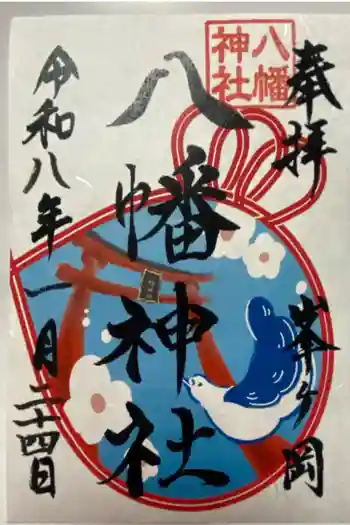 奉拝
峯ヶ岡
八幡神社
八幡神社
令和八年一月二十四日